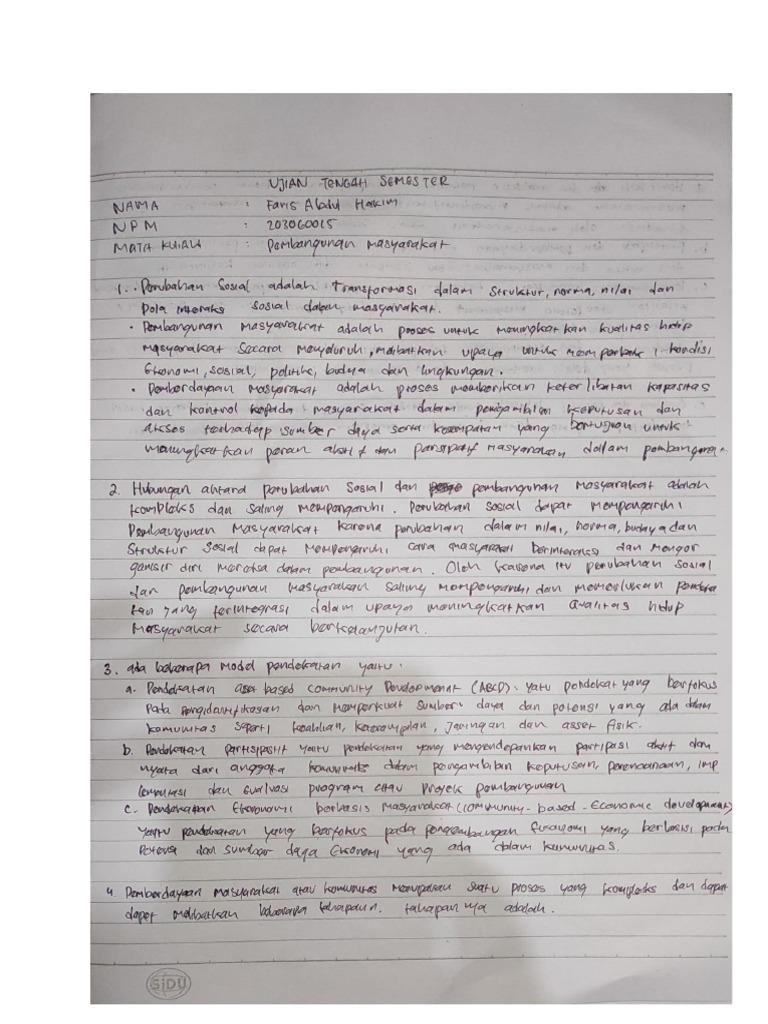 UJIAN TENGAH SEMESTER
NAMA : Faris Abdul Hakim
NPM : 203060015
MATA KULIAH : Pembangunan Masyarakat
1. • Perubahan Sosial adalah Transformasi dalam Struktur, norma, nilai dan
Pola interaks sosial dalam masyarakat.
• Pembangunan Masyarakat adalah proses untuk meningkatkan kualitas hidup
Masyarakat Secara menyeluruh, melibatkan upaya untuk memperbaiki kondisi
Ekonomi, sosial, politik, budaya dan lingkungan.
• Pemberdayaan Masyarakat adalah proses memberikan keterlibatan kapasitas
dan kontrol kepada masyarakat dalam pengambilan keputusan dan
akses terhadap sumber daya serta kesempatan yang bertujuan untuk
meningkatkan peran aktif dan Masyarakat dalam pembangunan.
2. Hubungan antara perubahan Sosial dan pembangunan Masyarakat adalah
kompleks dan saling mempengaruhi. Perubahan sosial dapat mempengaruhi
Pembangunan Masyarakat karena perubahan dalam nilai, norma, budaya dan
Struktur Sosial dapat mempengaruhi cara masyarakat berinteraksi dan mengor
ganisir diri mereka dalam pembangunan. Oleh karena itu perubahan sosial
dan pembangunan Masyarakat saling mempengaruhi dan memerlukan pendeka
tan yang terintegrasi dalam upaya meningkatkan kualitas hidup
Masyarakat secara berkelanjutan.
3. ada beberapa model pendekatan yaitu:
a. Pendekatan asset based community Development (ABCD). yaitu pendekat yang berfokus
pada dan memperkuat sumber daya dan potensi yang ada dalam
komunitas seperti keahlian, keterampilan, jaringan dan asset fisik.
b. Pendekatan partisipasif yaitu pendekatan yang mengendepankan partisipasi aktif dan
nyata dari anggota komunitas dalam pengambilan keputusan, perencanaan, imp
lementasi dan evaluasi program atau proyek pembangunan
c. Pendekatan Ekonomi berbasis masyarakat (community-based-Economic development)
yaitu pendekatan yang berfokus pada pengembangan Ekonomi yang berbasis pada
Potensi dan sumber daya Ekonomi yang ada dalam komunitas.
4. Pemberdayaan Masyarakat atau komunitas merupakan suatu proses yang kompleks dan dapat
dapat melibatkan beberapa tahapan. tahapan nya adalah.
SIDU